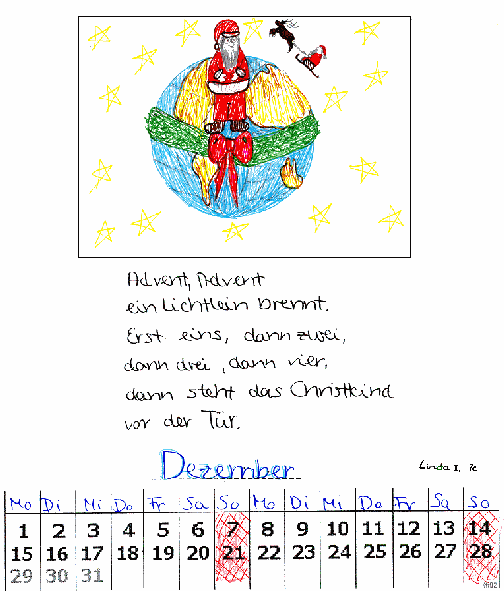 Advent, Advent
ein Lichtlein brennt.
Erst eins, dann zwei,
dann drei, dann vier,
dann steht das Christkind
vor der Tür.
Dezember
Linda I, 7c
Mo Di Mi Do Fr Sa So Mo Di Mi Do Fr Sa So
1 2 3 4 5 6 7 8 9 10 11 12 13 14
15 16 17 18 19 20 21 22 23 24 25 26 27 28
29 30 31